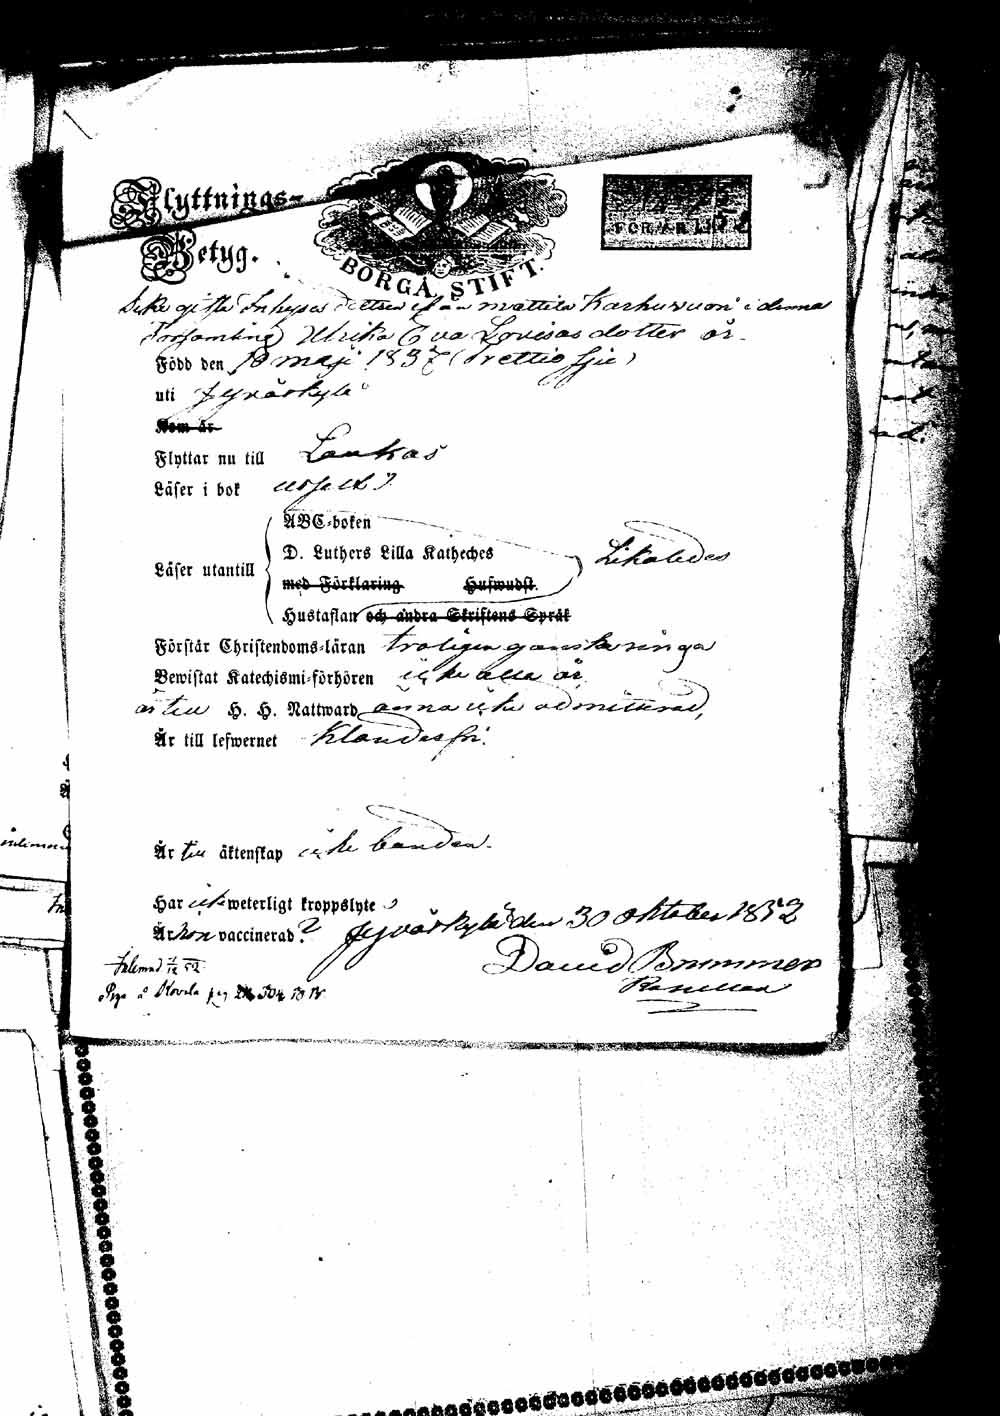 Flyttnings-
Betyg.
BORGÅ STIFT.
FÖR ÅR 1852
Icke gifta Inhyses dottren ifrån Mattila Karhuvuori i denna
Församling Ulrika Eva Lovisas dotter är
Född den 18 maji 1837 (trettio sju)
uti Jyväskylä
Kom är
Flyttar nu till Laukas
Läser i bok uselt
ABC-boken
D. Luthers Lilla Katheches
Läser utantill
Likaledes
med Förklaring Husswudst.
Hustaflan och andra Skriftens Språk
Förstår Christendoms-läran troligen ganska ringa
Bewistat Katechismi-förhören icke alla år
är till H. H. Nattward ännu icke admitterad,
Är till lefwernet Klanderfri.
Är till äktenskap icke bunden.
Har icke weterligt kroppslyte
Är hon vaccinerad?
Jyväskylä den 30 oktober 1852
David Brummer
Inlemnad 1/12 52
å Kovala pag